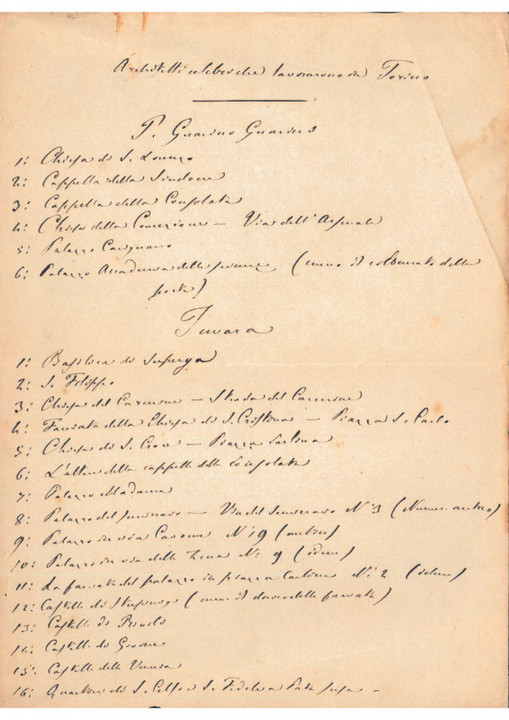 Architetti celebri che lavorarono in Torino
P. Guarino Guarini
1: Chiesa di S. Lorenzo
2: Cappella della Sindone
3: Cappella della Consolata
4: Chiesa della Concezione — Via dell'Arsenale
5: Palazzo Carignano
6: Palazzo Accademia delle scienze (meno il colonnato della
porta)
Juvara
1: Basilica di Superga
2: S. Filippo
3: Chiesa del Carmine — Strada del Carmine
4: Facciata della Chiesa di S. Cristina — Piazza S. Carlo
5: Chiesa di S. Croce — Piazza Carlina
6: L'altare della cappella della Consolata
7: Palazzo Madama
8: Palazzo del — Via del Seminario N: 3 (Numeri antichi)
9: Palazzo in via Cavour N: 19 (antico)
10: Palazzo in via della Zecca N: 9 (idem)
11: La facciata del palazzo in piazza N: 2 (idem)
12: Castello di Stupinigi (meno il della facciata)
13: Castello di Rivoli
14: Castello di Govone
15: Castello della Venaria
16: Quartieri di S. Celso e S. Fedele a Porta Susa —